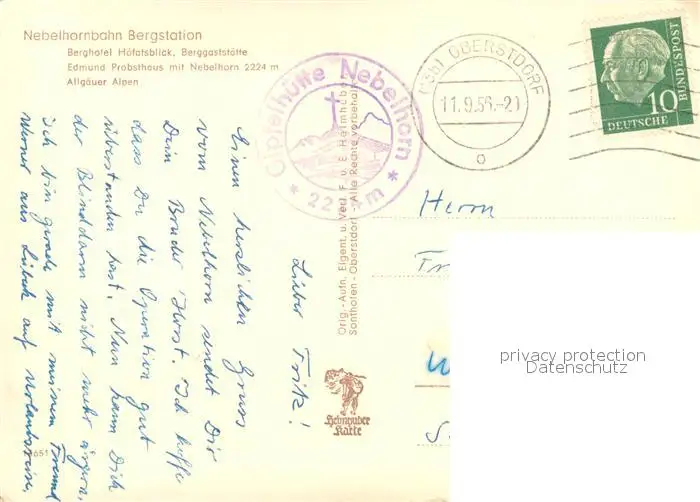 Nebelhornbahn Bergstation
Berghotel Höfatsblick, Berggaststätte
Edmund Probsthaus mit Nebelhorn 2224 m
Allgäuer Alpen
Gipfelhütte Nebelhorn
* 2224m *
(13b) OBERSTDORF
11.9.56.-21
o
10
DEUTSCHE
BUNDESPOST
Lieber Fritz!
Einen herzlichen Gruss
vom Nebelhorn sendet Dir
Dein Bruder Horst. Ich hoffe
dass Du die Operation gut
überstanden hast. Nun kann Dich
der Blinddarm nicht mehr ärgern.
Ich bin gerade mit meinem Freund
Werner aus Lübeck auf Urlaubsreise.
Orig.-Aufn. Eigent. u. Verl. F. u. E. Heimhuber
Sonthofen-Oberstdorf - Alle Rechte vorbehalten
Heimhuber
Karte
Herrn
privacy protection
Datenschutz